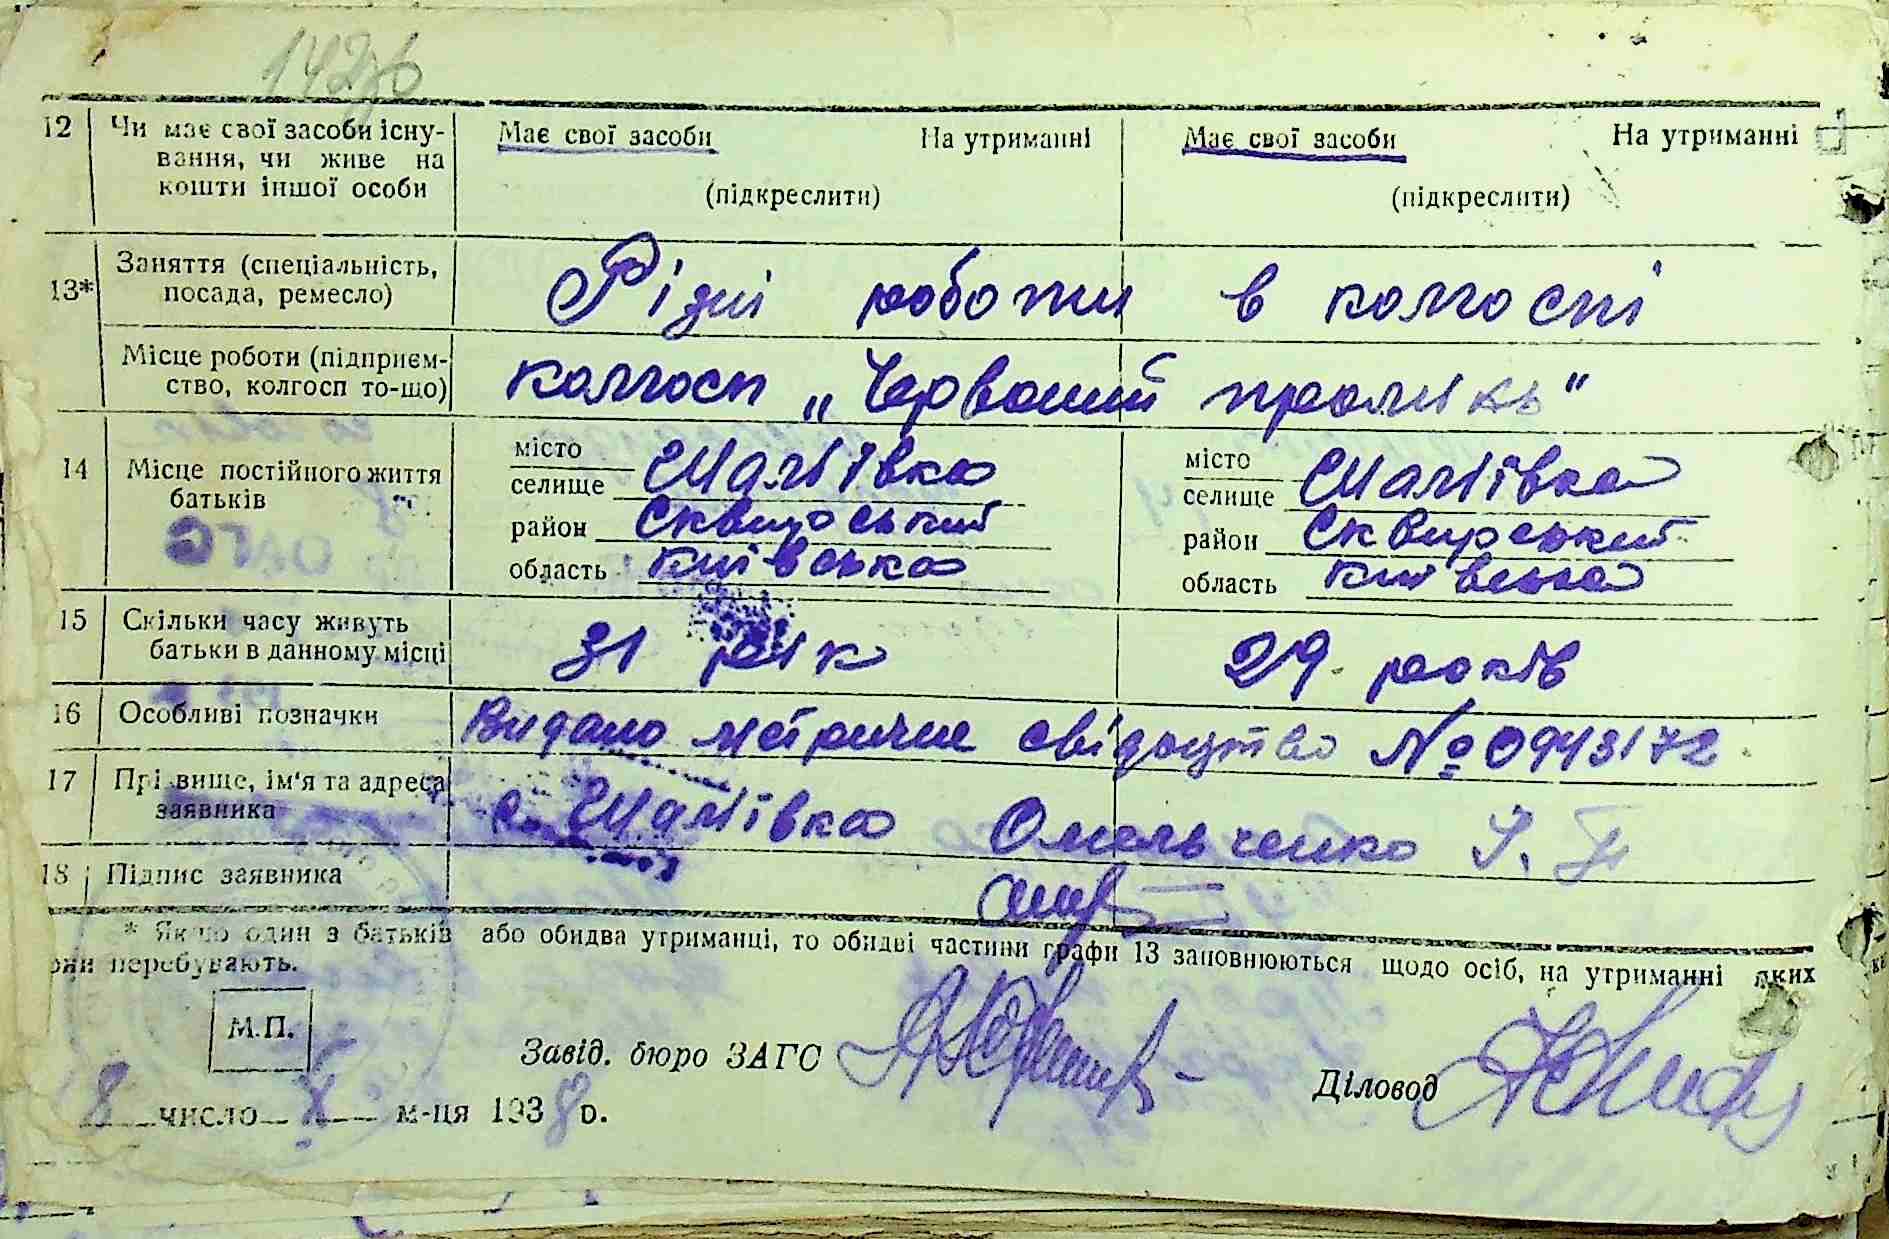 142зв
12 Чи має свої засоби існу- Має свої засоби На утриманні Має свої засоби На утриманні
вання, чи живе на
кошти іншої особи (підкреслити) (підкреслити)
13* Заняття (спеціальність, Різні роботи в колгоспі
посада, ремесло)
Місце роботи (підприєм- колгосп „Червоний промінь"
ство, колгосп то-що)
14 Місце постійного життя місто Шаліївка місто Шаліївка
батьків селище селище
район Сквирський район Сквирський
область Київська область Київська
15 Скільки часу живуть 31 рік 29 років
батьки в данному місці
16 Особливі позначки Видано метричне свідоцтво № 0943172
17 Прізвище, ім'я та адреса с. Шаліївка Омельченко І.
заявника
18 Підпис заявника
* Якщо один з батьків або обидва утриманці, то обидві частини графи 13 заповнюються щодо осіб, на утриманні яких
вони перебувають.
М.П.
Завід. бюро ЗАГС
Діловод
8 число X м-ця 1938 р.